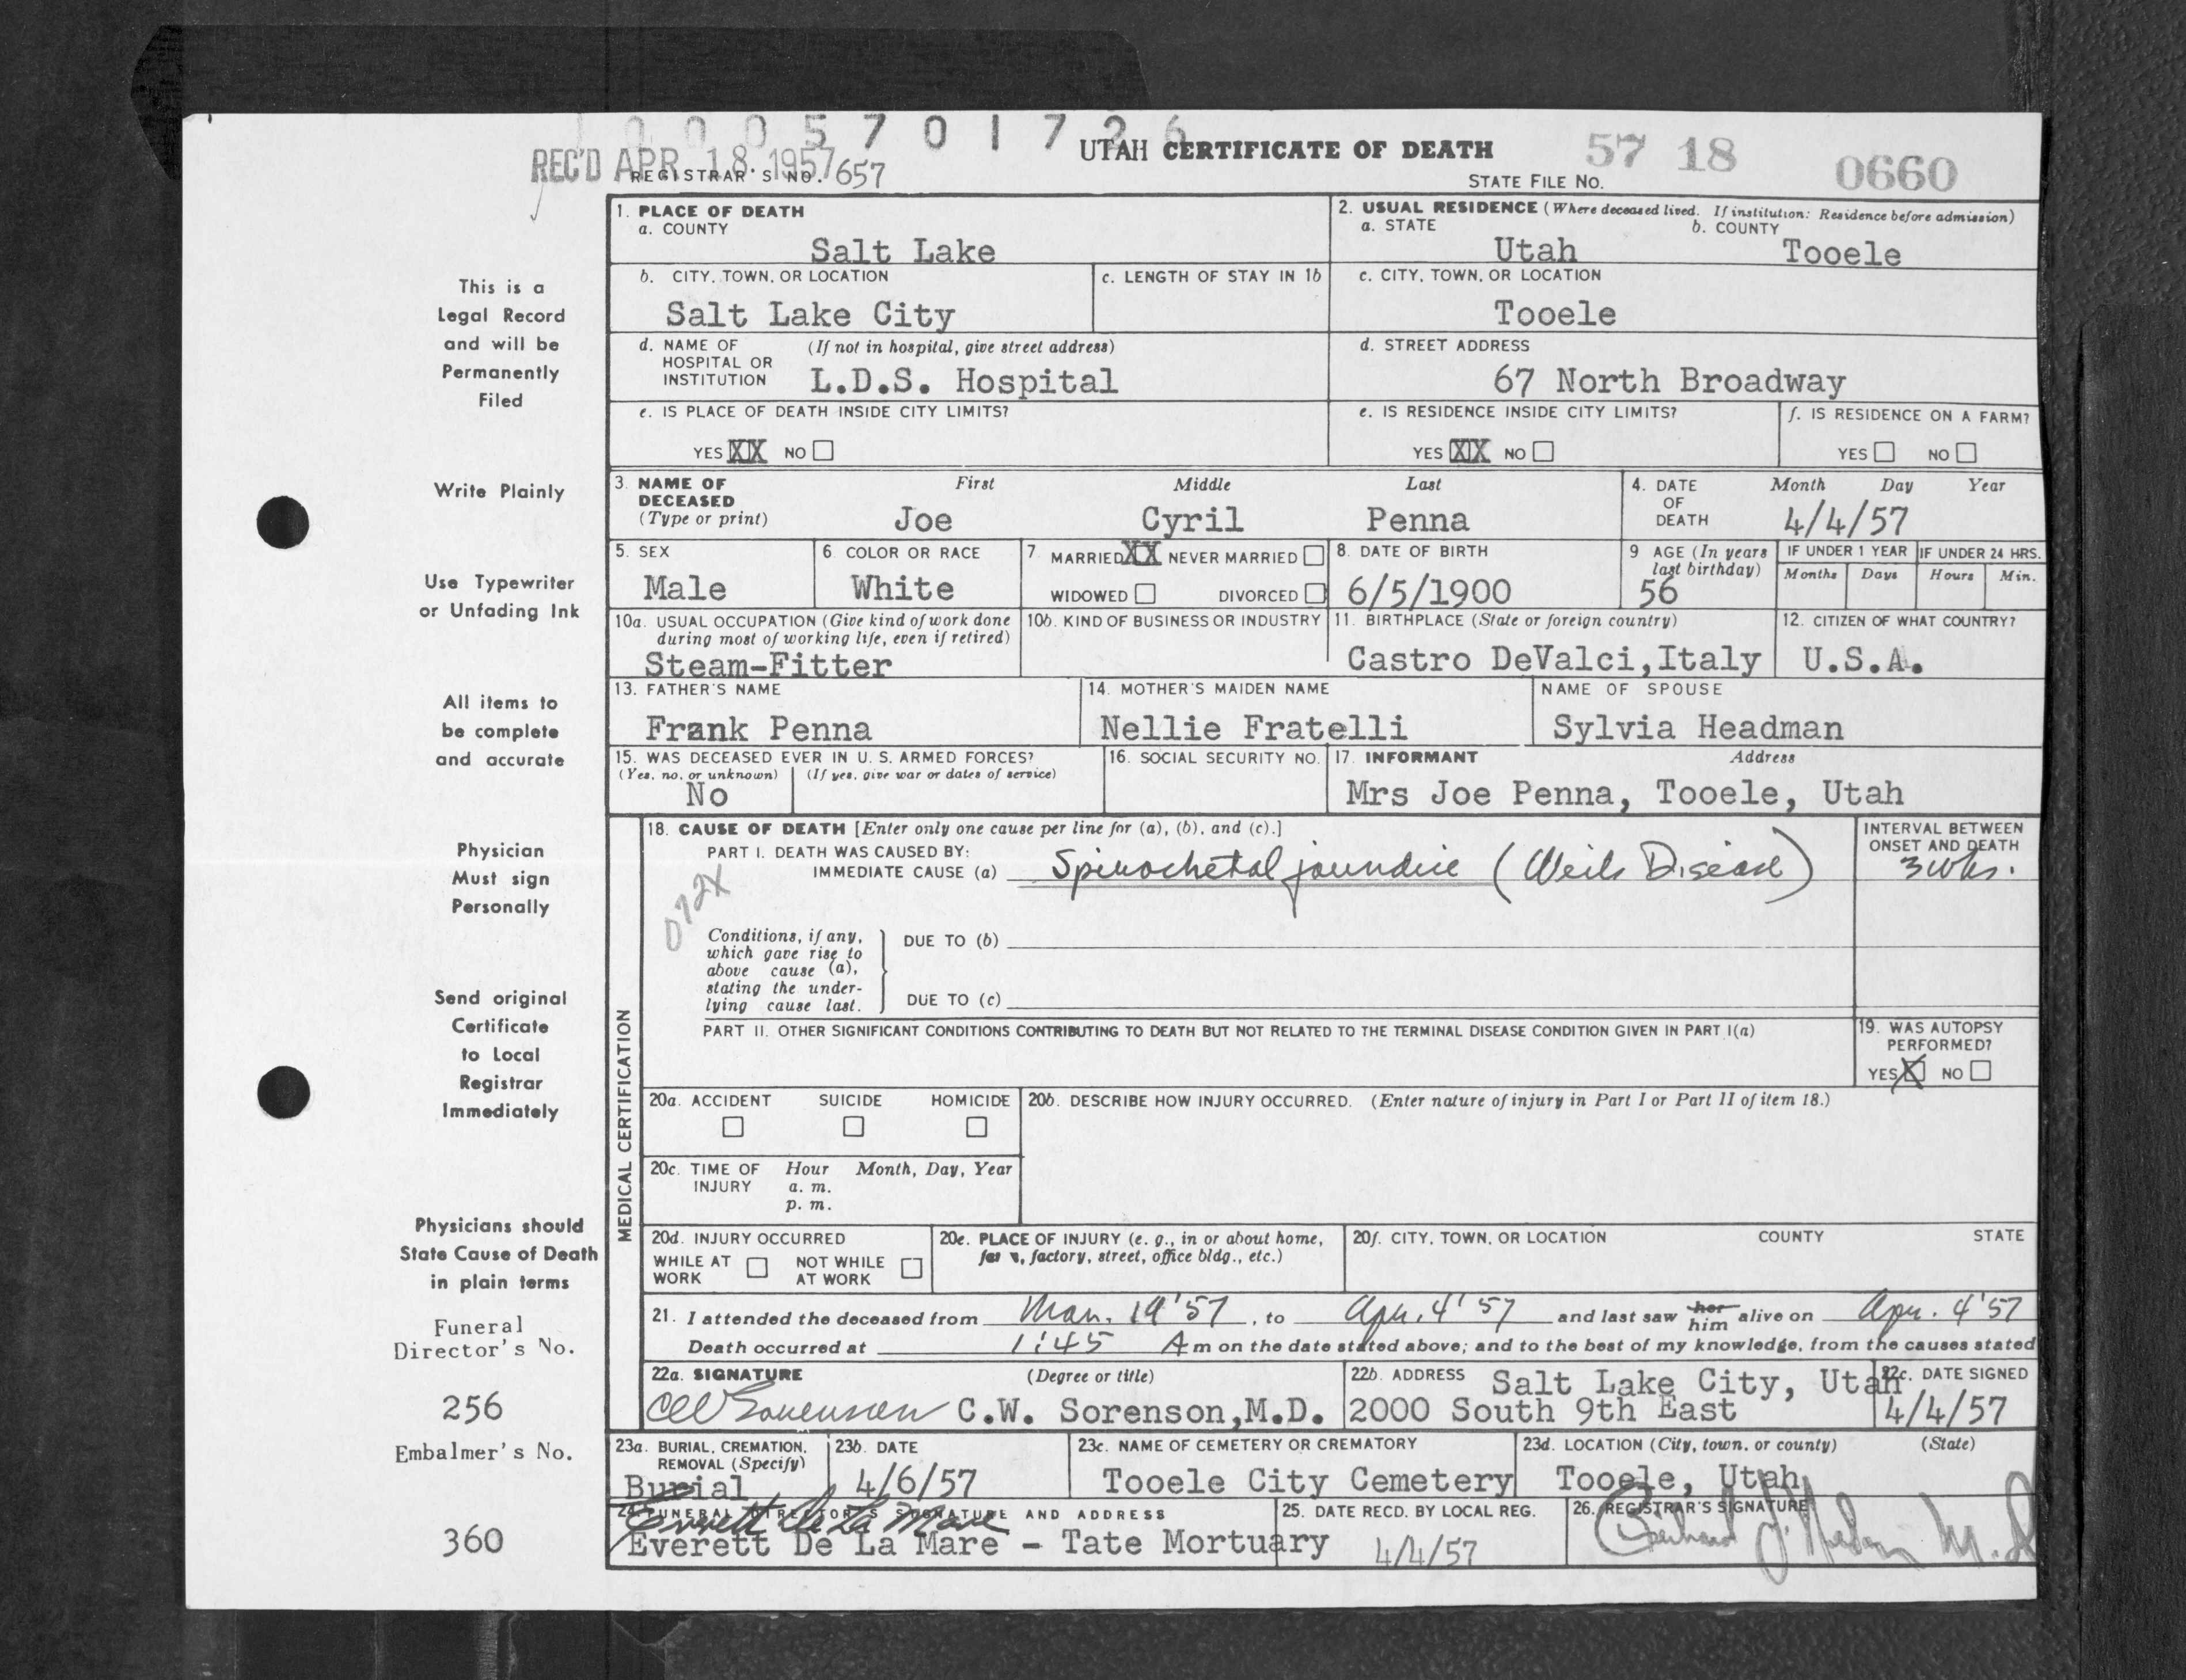 1 0 0 0 5 7 0 1 7 2 6
REC'D APR 18 1957
REGISTRAR'S NO. 657
UTAH CERTIFICATE OF DEATH
57 18 0660
STATE FILE NO.
This is a
Legal Record
and will be
Permanently
Filed
Write Plainly
Use Typewriter
or Unfading Ink
All items to
be complete
and accurate
Physician
Must sign
Personally
Send original
Certificate
to Local
Registrar
Immediately
Physicians should
State Cause of Death
in plain terms
Funeral
Director's No.
256
Embalmer's No.
360
1. PLACE OF DEATH
a. COUNTY
Salt Lake
2. USUAL RESIDENCE (Where deceased lived. If institution: Residence before admission)
a. STATE b. COUNTY
Utah Tooele
b. CITY, TOWN, OR LOCATION
Salt Lake City
c. LENGTH OF STAY IN 1b
c. CITY, TOWN, OR LOCATION
Tooele
d. NAME OF (If not in hospital, give street address)
HOSPITAL OR
INSTITUTION L.D.S. Hospital
d. STREET ADDRESS
67 North Broadway
e. IS PLACE OF DEATH INSIDE CITY LIMITS?
YES XX NO
e. IS RESIDENCE INSIDE CITY LIMITS?
YES XX NO
f. IS RESIDENCE ON A FARM?
YES NO
3. NAME OF First Middle Last
DECEASED
(Type or print) Joe Cyril Penna
4. DATE Month Day Year
OF
DEATH 4/4/57
5. SEX
Male
6. COLOR OR RACE
White
7. MARRIED XX NEVER MARRIED
WIDOWED DIVORCED
8. DATE OF BIRTH
6/5/1900
9 AGE (In years
last birthday)
56
IF UNDER 1 YEAR IF UNDER 24 HRS.
Months Days Hours Min.
10a. USUAL OCCUPATION (Give kind of work done
during most of working life, even if retired)
Steam-Fitter
10b. KIND OF BUSINESS OR INDUSTRY
11. BIRTHPLACE (State or foreign country)
Castro DeValci,Italy
12. CITIZEN OF WHAT COUNTRY?
U.S.A.
13. FATHER'S NAME
Frank Penna
14. MOTHER'S MAIDEN NAME
Nellie Fratelli
NAME OF SPOUSE
Sylvia Headman
15. WAS DECEASED EVER IN U. S. ARMED FORCES?
(Yes, no, or unknown) (If yes, give war or dates of service)
No
16. SOCIAL SECURITY NO.
17. INFORMANT Address
Mrs Joe Penna, Tooele, Utah
MEDICAL CERTIFICATION
18. CAUSE OF DEATH [Enter only one cause per line for (a), (b), and (c).]
PART I. DEATH WAS CAUSED BY:
IMMEDIATE CAUSE (a) Spirochetal jaundice (Weils Disease)
072X
INTERVAL BETWEEN
ONSET AND DEATH
3 wks.
Conditions, if any,
which gave rise to
above cause (a),
stating the under-
lying cause last.
DUE TO (b)
DUE TO (c)
PART II. OTHER SIGNIFICANT CONDITIONS CONTRIBUTING TO DEATH BUT NOT RELATED TO THE TERMINAL DISEASE CONDITION GIVEN IN PART I(a)
19. WAS AUTOPSY
PERFORMED?
YES X NO
20a. ACCIDENT SUICIDE HOMICIDE
20b. DESCRIBE HOW INJURY OCCURRED. (Enter nature of injury in Part I or Part II of item 18.)
20c. TIME OF Hour Month, Day, Year
INJURY a. m.
p. m.
20d. INJURY OCCURRED
WHILE AT NOT WHILE
WORK AT WORK
20e. PLACE OF INJURY (e. g., in or about home,
factory, street, office bldg., etc.)
20f. CITY, TOWN, OR LOCATION COUNTY STATE
21. I attended the deceased from Mar. 19 '57, to Apr. 4 '57 and last saw her him alive on Apr. 4 '57
Death occurred at 1:45 A m on the date stated above; and to the best of my knowledge, from the causes stated
22a. SIGNATURE (Degree or title)
CW Sorensen C.W. Sorenson,M.D.
22b. ADDRESS Salt Lake City, Utah
2000 South 9th East
22c. DATE SIGNED
4/4/57
23a. BURIAL, CREMATION,
REMOVAL (Specify)
Burial
23b. DATE
4/6/57
23c. NAME OF CEMETERY OR CREMATORY
Tooele City Cemetery
23d. LOCATION (City, town, or county) (State)
Tooele, Utah
24. FUNERAL DIRECTOR'S SIGNATURE AND ADDRESS
Everett De La Mare
Everett De La Mare - Tate Mortuary
25. DATE RECD. BY LOCAL REG.
4/4/57
26. REGISTRAR'S SIGNATURE
M.D.